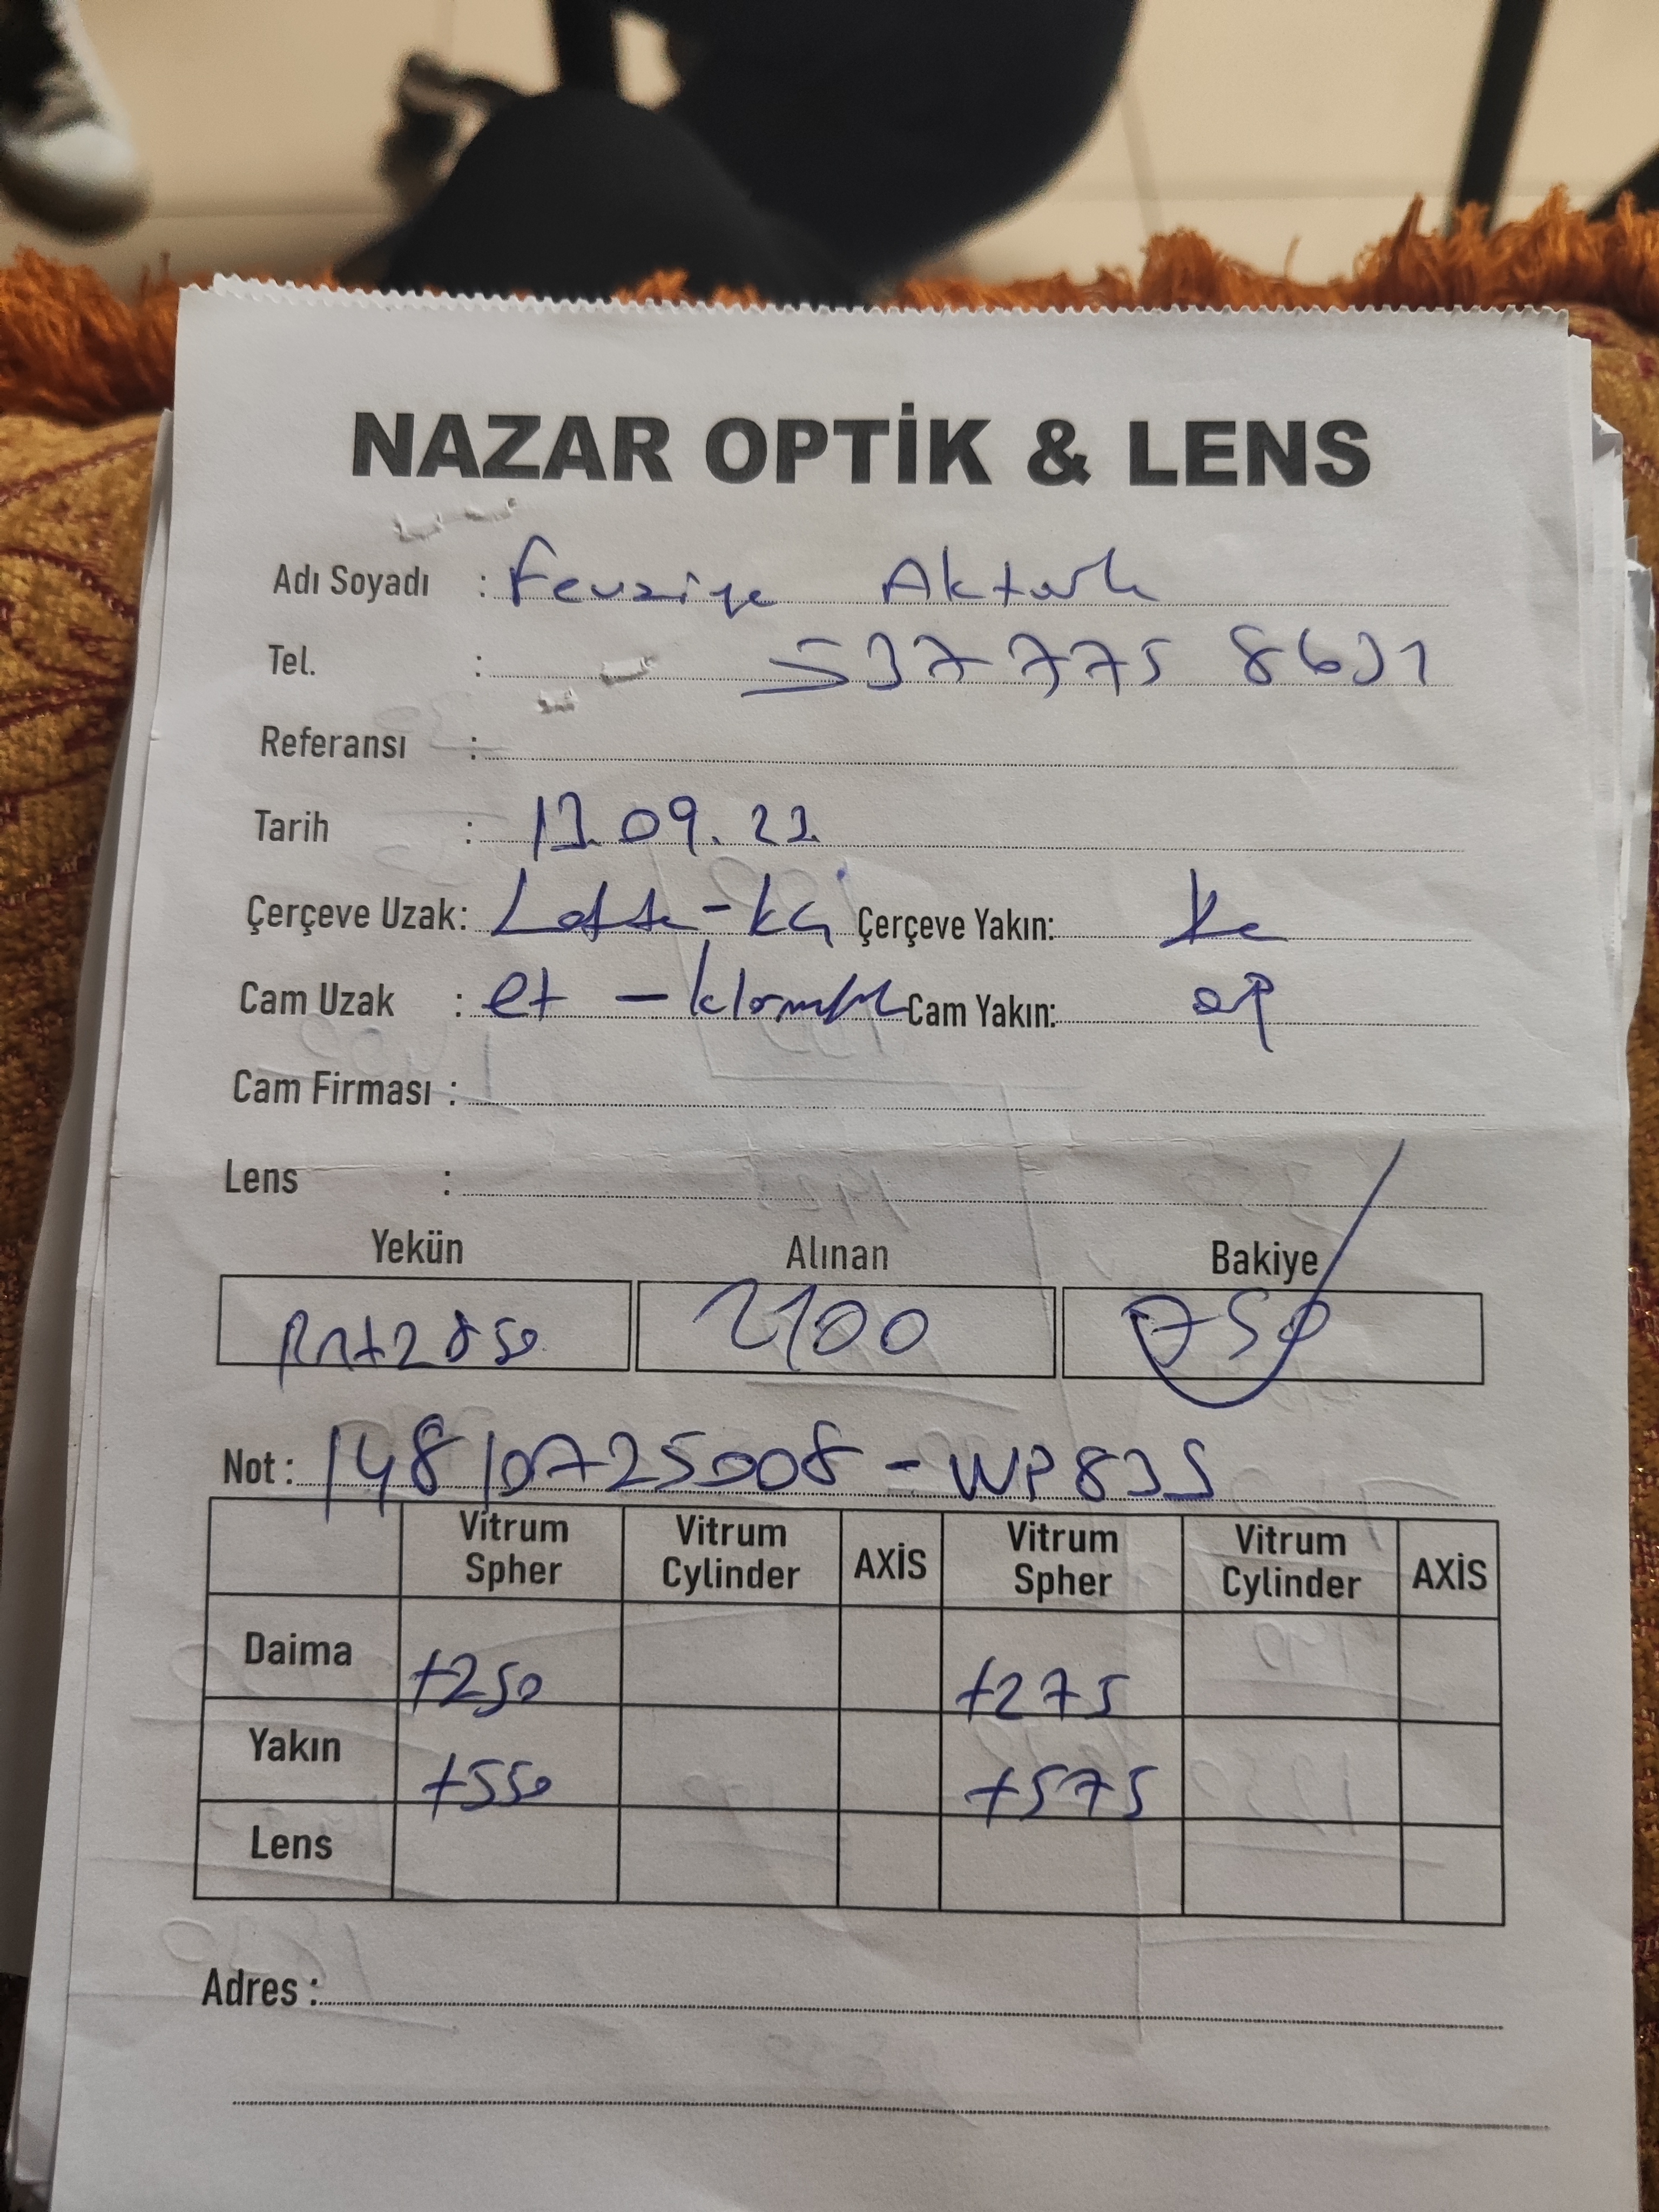 NAZAR OPTİK & LENS
Adı Soyadı : Fevziye Aktürk
Tel. : 537 775 8631
Referansı :
Tarih : 13.09.22
Çerçeve Uzak: Çerçeve Yakın:
Cam Uzak : Cam Yakın:
Cam Firması :
Lens :
Yekün Alınan Bakiye
2850 2100 750
Not : 14810725008 - WP835
Vitrum Spher Vitrum Cylinder AXİS Vitrum Spher Vitrum Cylinder AXİS
Daima +250 +275
Yakın +550 +575
Lens
Adres :